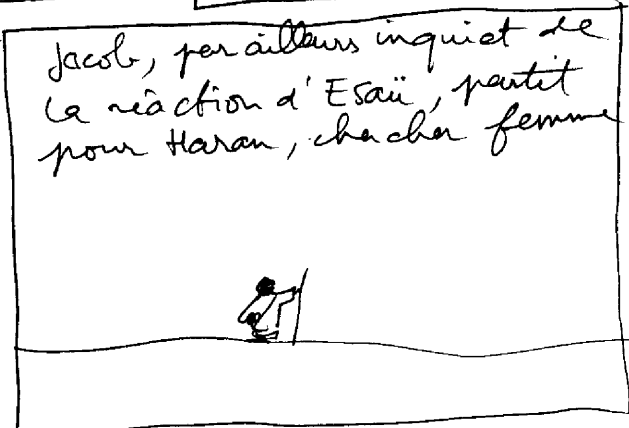 Jacob, par ailleurs inquiet de
la réaction d'Esaü, partit
pour Haran, chercher femme